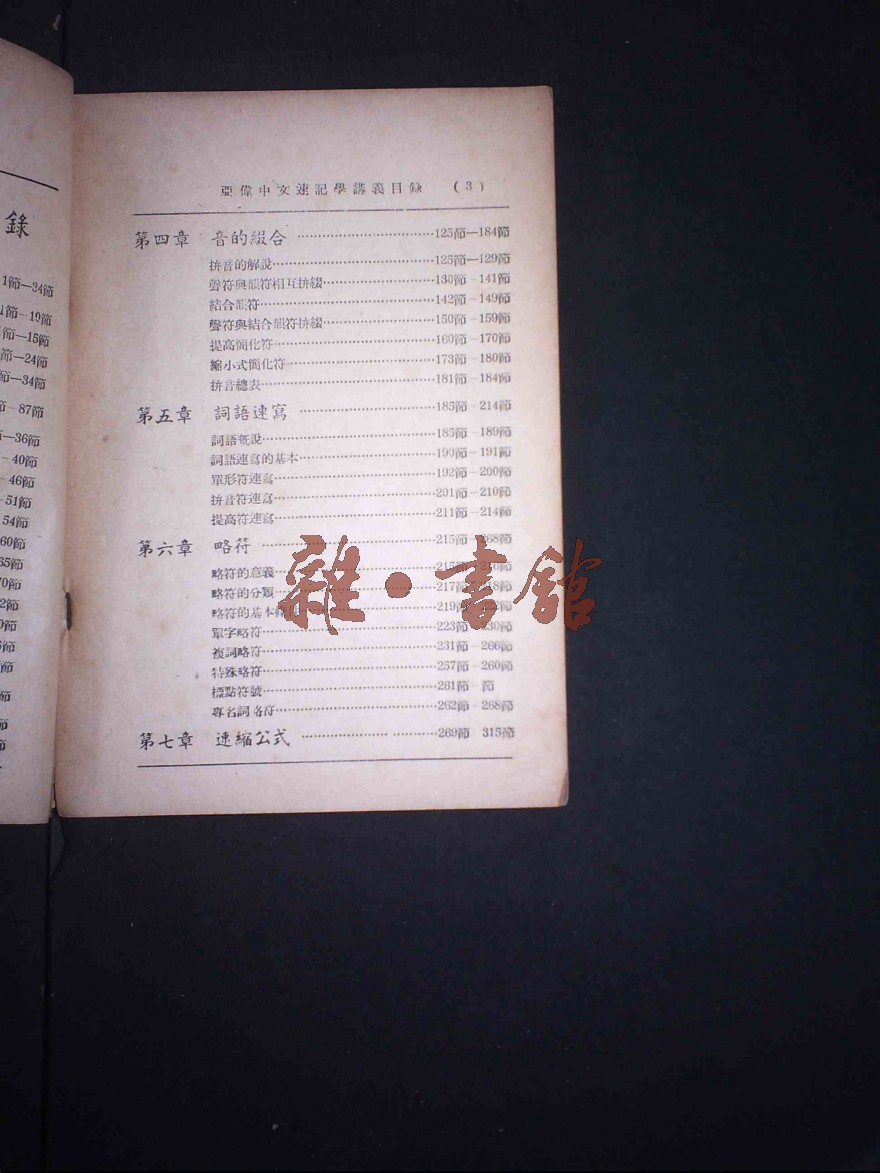 錄
1節—34節
節—15節
節—24節
節—34節
87節
—36節
40節
46節
51節
54節
亞偉中文速記學講義目錄 (3)
第四章 音的綴合 ……125節—184節
拼音的解說……125節—129節
聲符與韻符相互拚綴……130節–141節
結合韻符……142節–149節
聲符與結合韻符拚綴……150節–159節
提高簡化符……160節–170節
縮小式簡化符……173節–180節
拚音總表……181節–184節
第五章 詞語連寫 ……185節–214節
詞語槪說……185節–189節
詞語連寫的基本……190節–191節
單形符連寫……192節–200節
拚音符連寫……201節–210節
提高符連寫……211節–214節
第六章 略符 ……215節–268節
略符的意義……215節
略符的分類……217節
略符的基本……219節
單字略符……223節–230節
複詞略符……231節–266節
特殊略符……257節–260節
標點符號……261節–節
專名詞略符……262節–268節
第七章 速縮公式 ……269節 315節
雜·書館